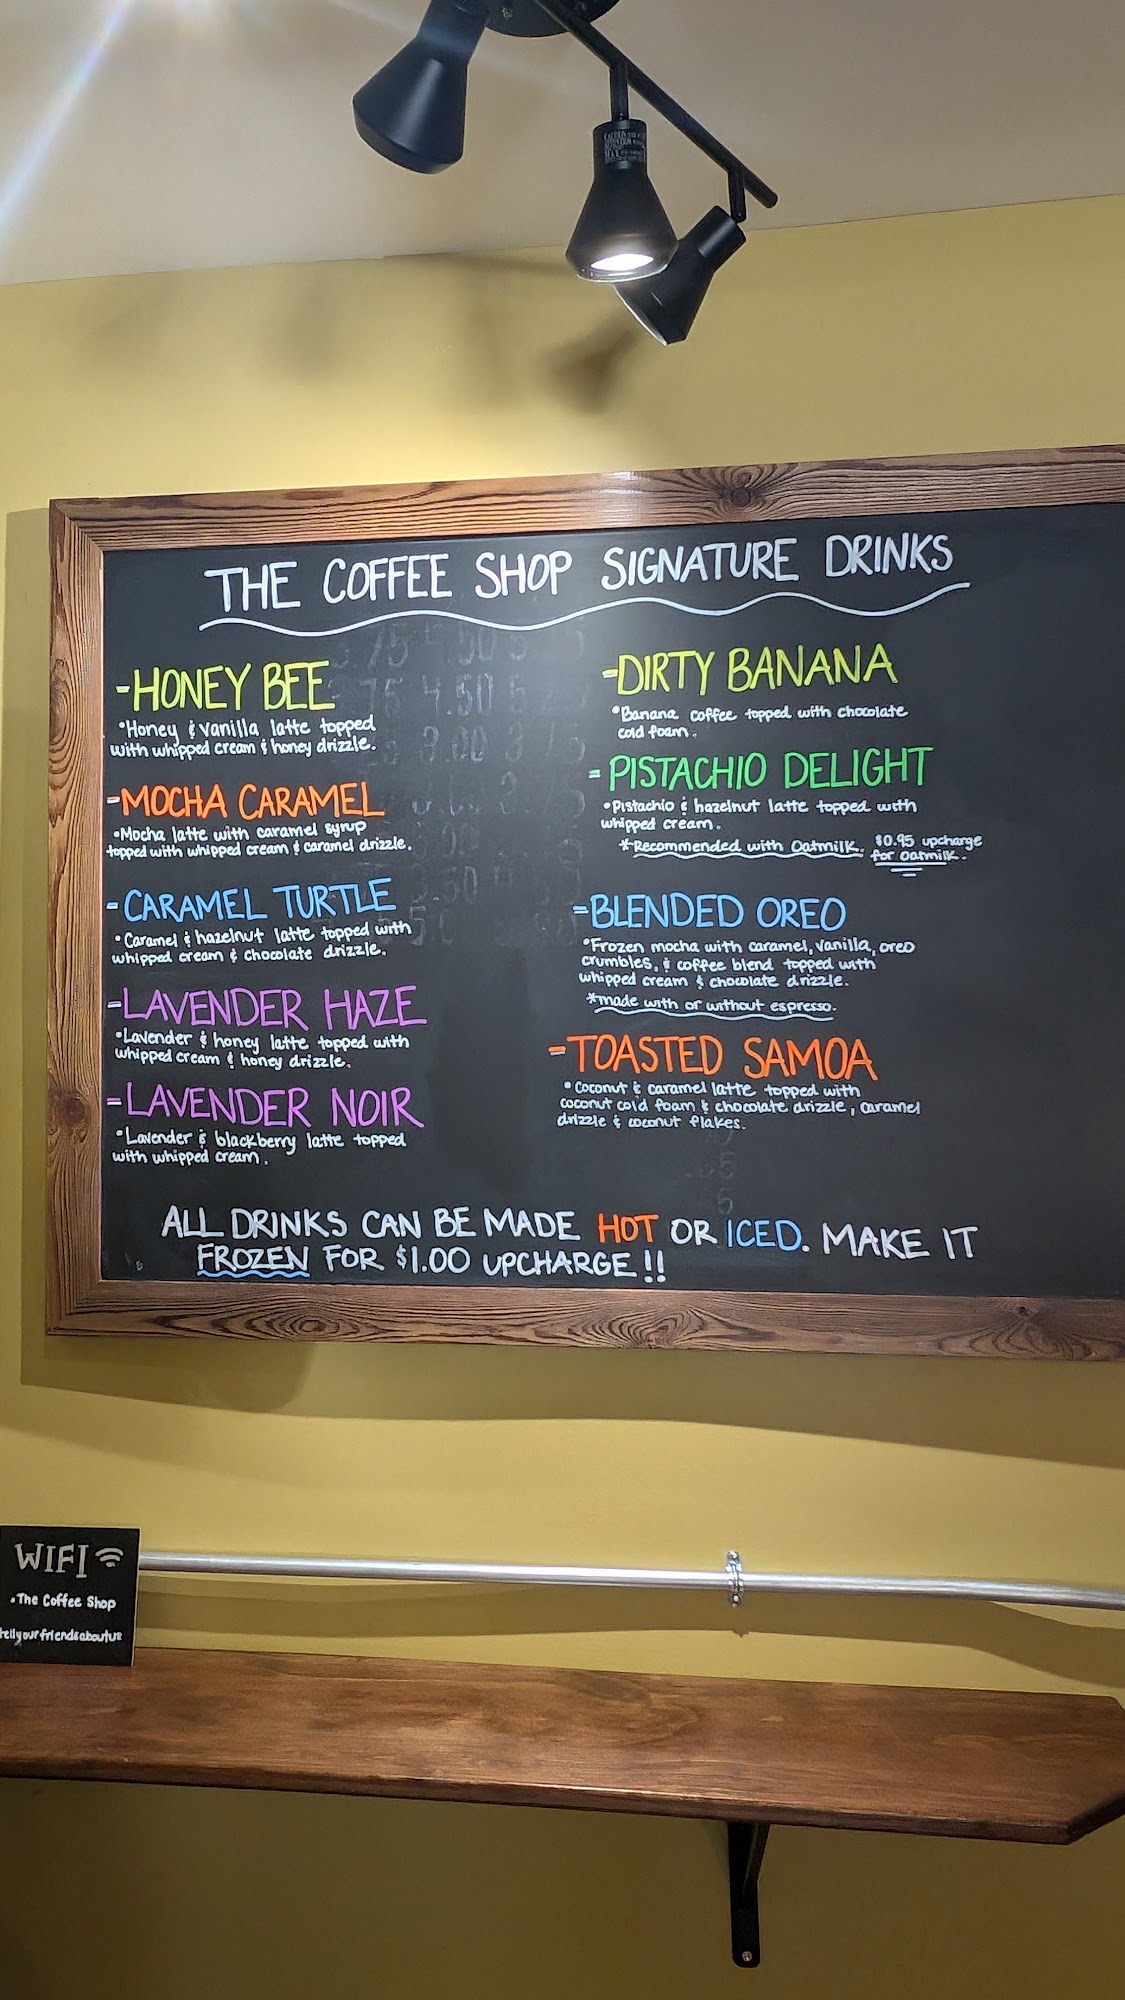 THE COFFEE SHOP SIGNATURE DRINKS
-HONEY BEE
•Honey & vanilla latte topped
with whipped cream & honey drizzle.
-MOCHA CARAMEL
•Mocha latte with caramel syrup
topped with whipped cream & caramel drizzle.
-CARAMEL TURTLE
•Caramel & hazelnut latte topped with
whipped cream & chocolate drizzle.
-LAVENDER HAZE
•Lavender & honey latte topped with
whipped cream & honey drizzle.
-LAVENDER NOIR
•Lavender & blackberry latte topped
with whipped cream.
-DIRTY BANANA
•Banana coffee topped with chocolate
cold foam.
-PISTACHIO DELIGHT
•Pistachio & hazelnut latte topped with
whipped cream.
*Recommended with Oatmilk. $0.95 upcharge
for oatmilk.
-BLENDED OREO
•Frozen mocha with caramel, vanilla, oreo
crumbles, & coffee blend topped with
whipped cream & chocolate drizzle.
*made with or without espresso.
-TOASTED SAMOA
•Coconut & caramel latte topped with
coconut cold foam & chocolate drizzle, caramel
drizzle & coconut flakes.
ALL DRINKS CAN BE MADE HOT OR ICED. MAKE IT
FROZEN FOR $1.00 UPCHARGE!!
WIFI
•The Coffee Shop
tellyourfriendsaboutus